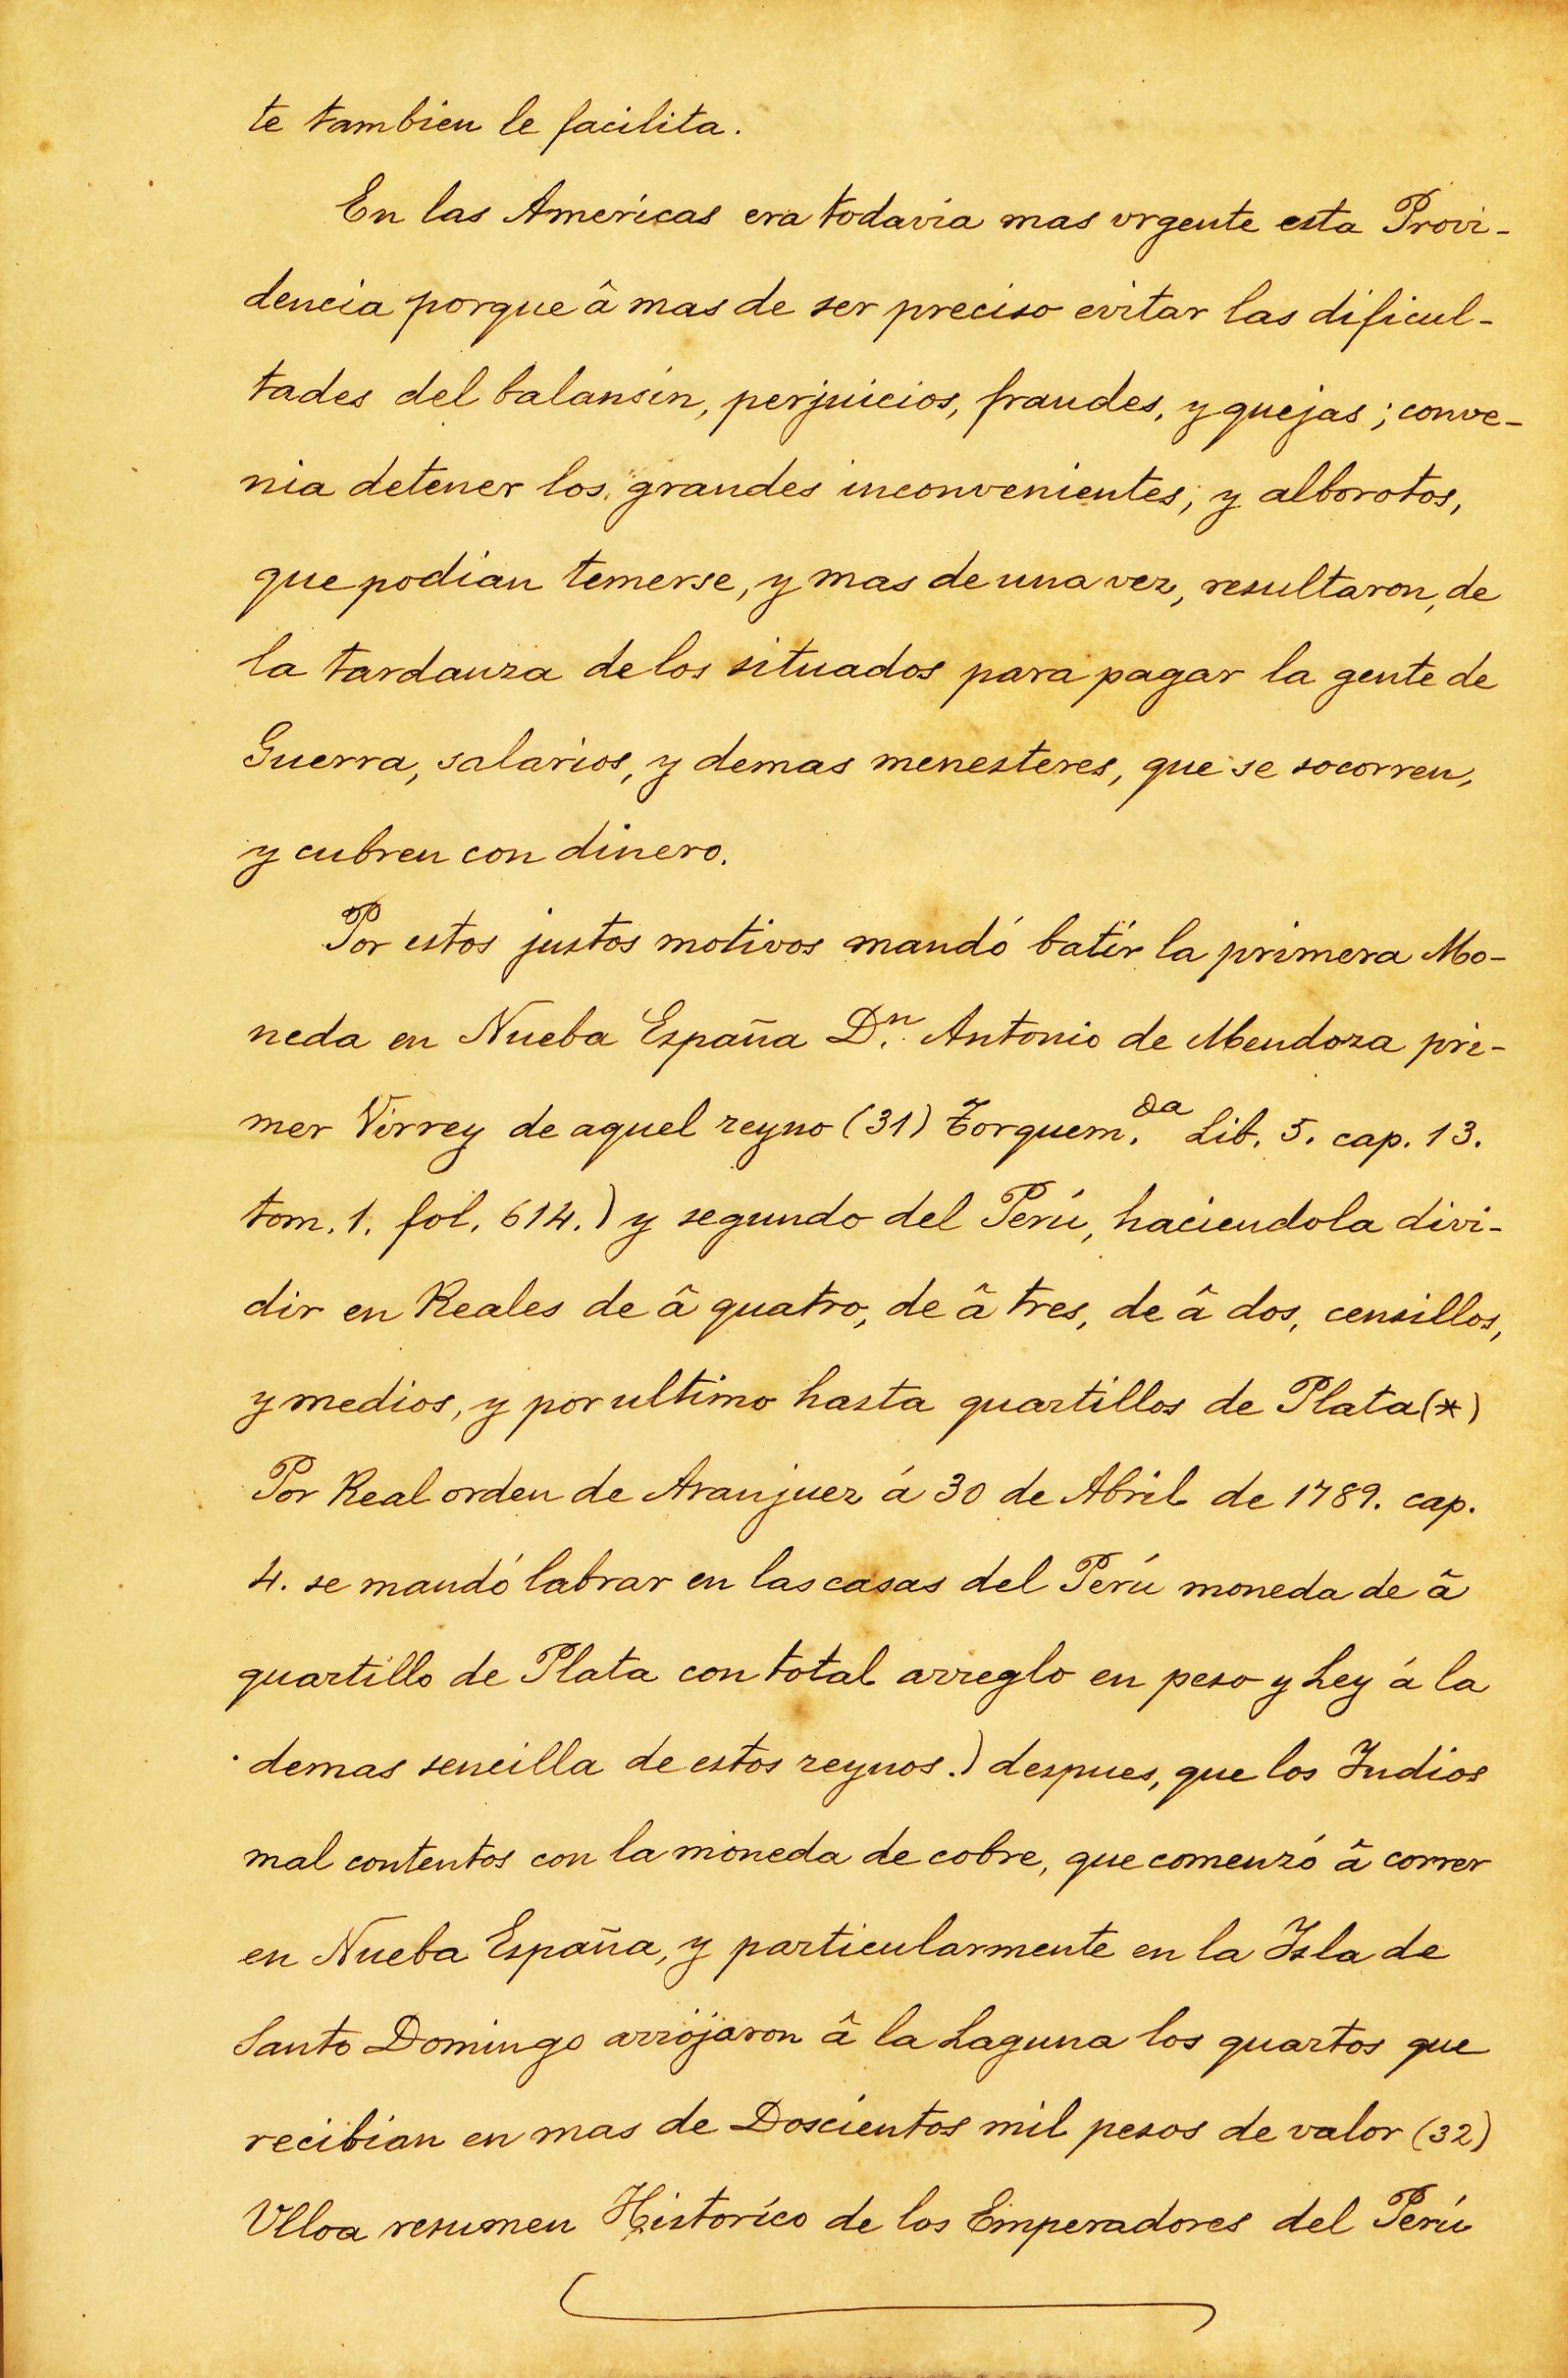 te tambien le facilita.
En las Americas era todavia mas vrgente esta Provi-
dencia porque â mas de ser preciso evitar las dificul-
tades del balansin, perjuicios, fraudes, y quejas; conve-
nia detener los grandes inconvenientes, y alborotos,
que podian temerse, y mas de una vez, resultaron, de
la tardanza de los situados para pagar la gente de
Guerra, salarios, y demas menesteres, que se socorren,
y cubren con dinero.
Por estos justos motivos mandó batir la primera Mo-
neda en Nueba España D.n Antonio de Mendoza pri-
mer Virrey de aquel reyno (31) Torquem.da Lib. 5. cap. 13.
tom. 1. fol. 614.) y segundo del Perú, haciendola divi-
dir en Reales de â quatro, de â tres, de â dos, censillos,
y medios, y por ultimo hasta quartillos de Plata (*)
Por Real orden de Aranjuez á 30 de Abril de 1789. cap.
4. se mandó labrar en las casas del Perú moneda de â
quartillo de Plata con total arreglo en peso y Ley á la
demas sencilla de estos reynos.) despues, que los Indios
mal contentos con la moneda de cobre, que comenzó â correr
en Nueba España, y particularmente en la Isla de
Santo Domingo arrojaron â la Laguna los quartos que
recibian en mas de Doscientos mil pesos de valor (32)
Vlloa resumen Historíco de los Emperadores del Perú